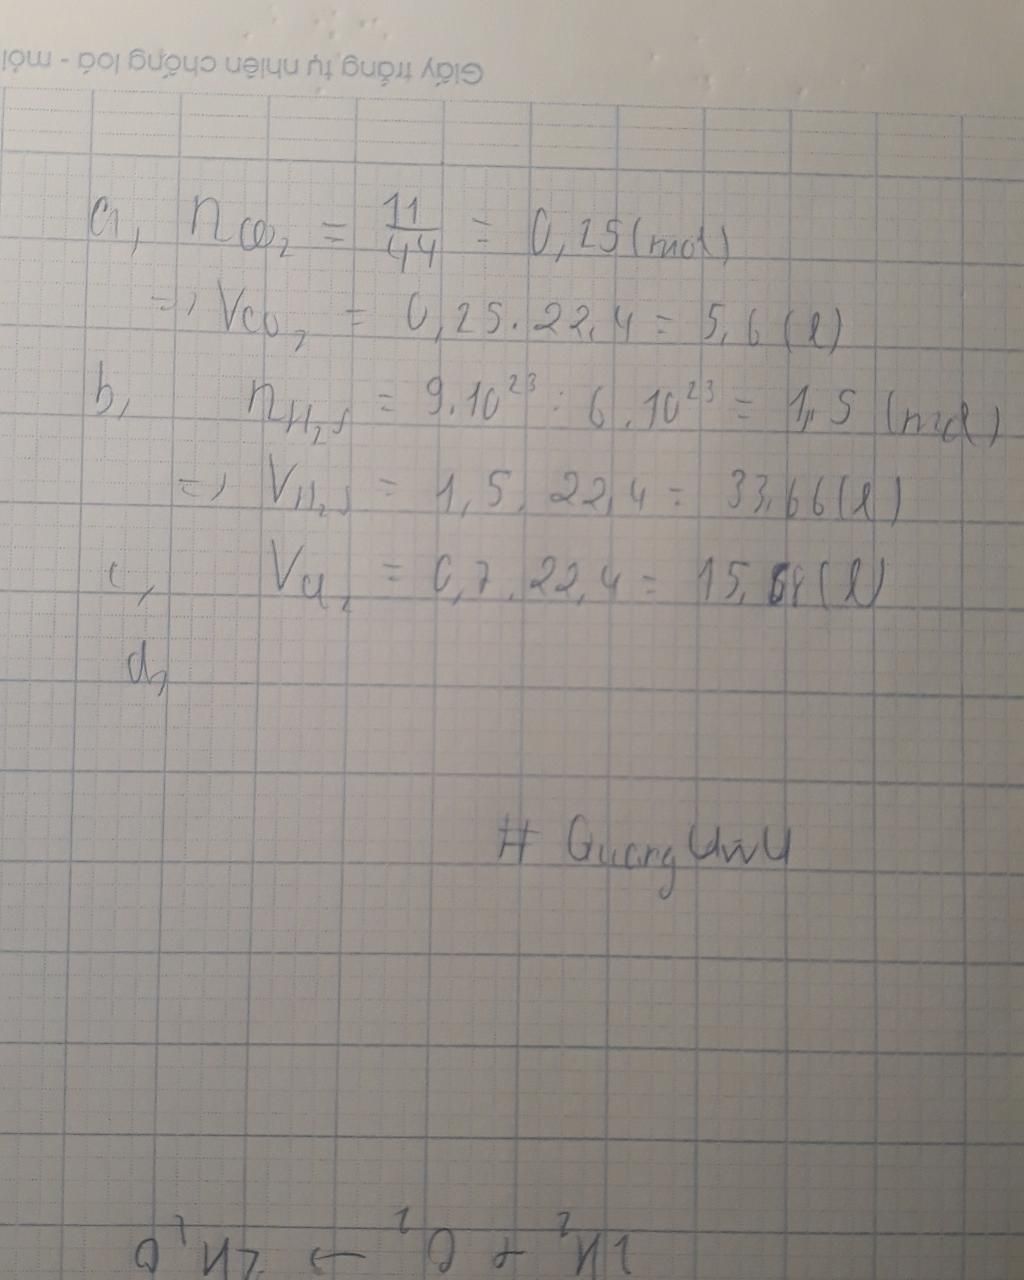 Giấy trắng tự nhiên chống loá - mỏi
a, nCO₂ = 11/44 = 0,25 (mol)
=> VCO₂ = 0,25.22,4 = 5,6 (l)
b, nH₂S = 9.10²³ : 6.10²³ = 1,5 (mol)
=> VH₂S = 1,5.22,4 = 33,66 (l)
c, VCl₂ = 0,7.22,4 = 15,68 (l)
d,
# Quang UwU
2H₂ + O₂ → 2H₂O